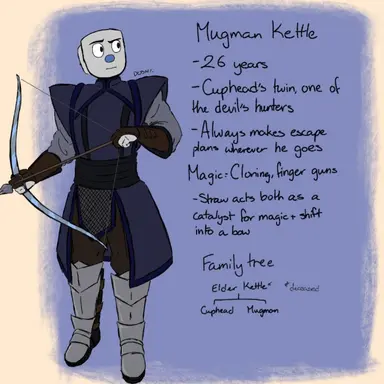 Mugman Kettle
-26 years
-Cuphead's twin, one of
the devil's hunters
-Always makes escape
plans wherever he goes
Magic: Cloning, finger guns
-Straw acts both as a
catalyst for magic + shift
into a bow
Family tree
Elder Kettle* *deceased
Cuphead Mugman